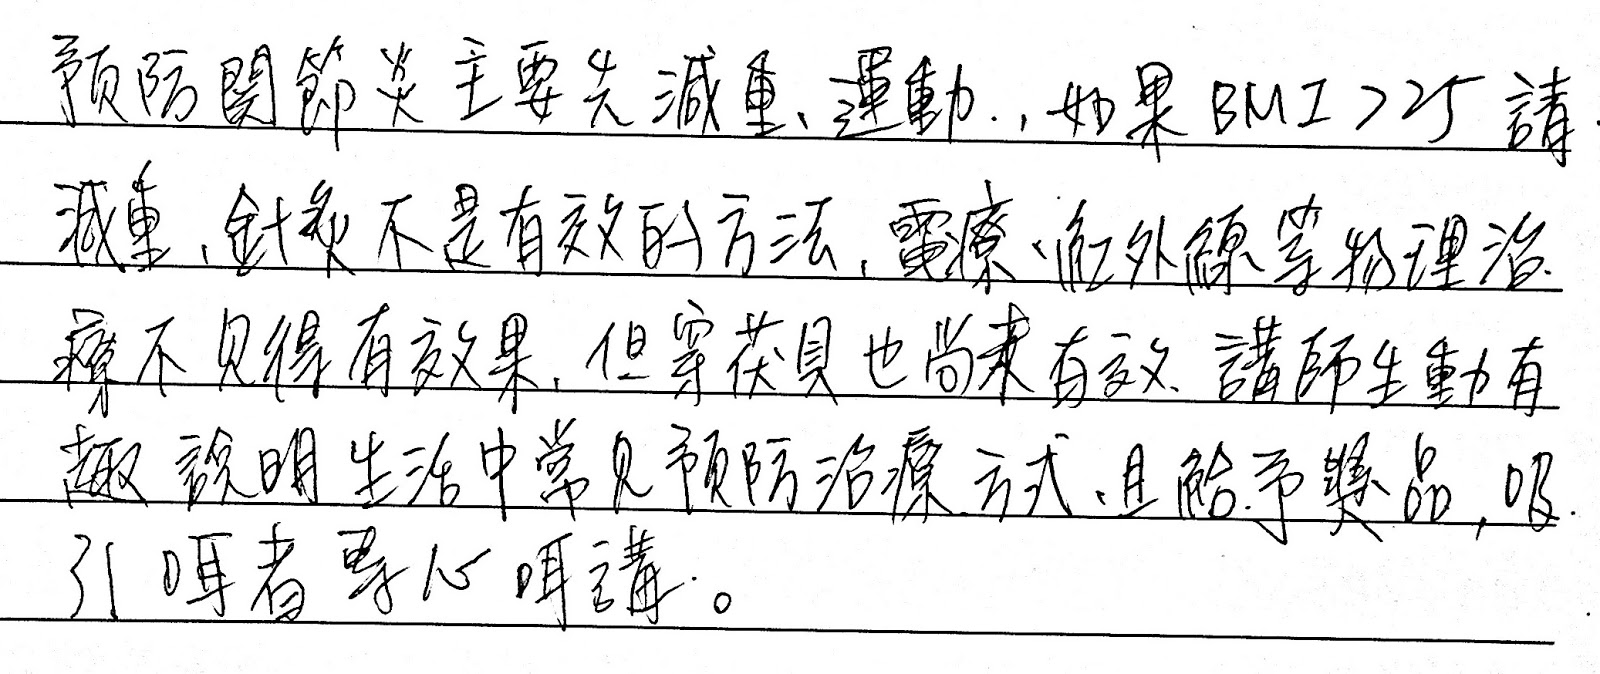 預防關節炎主要先減重、運動.,如果BMI>25請
減重,針灸不是有效的方法,電療、紅外線等物理治
療不見得有效果,但穿茯具也尚未有效.講師生動有
趣說明生活中常見預防治療方式、且給予獎品,吸
引咡者專心咡講。